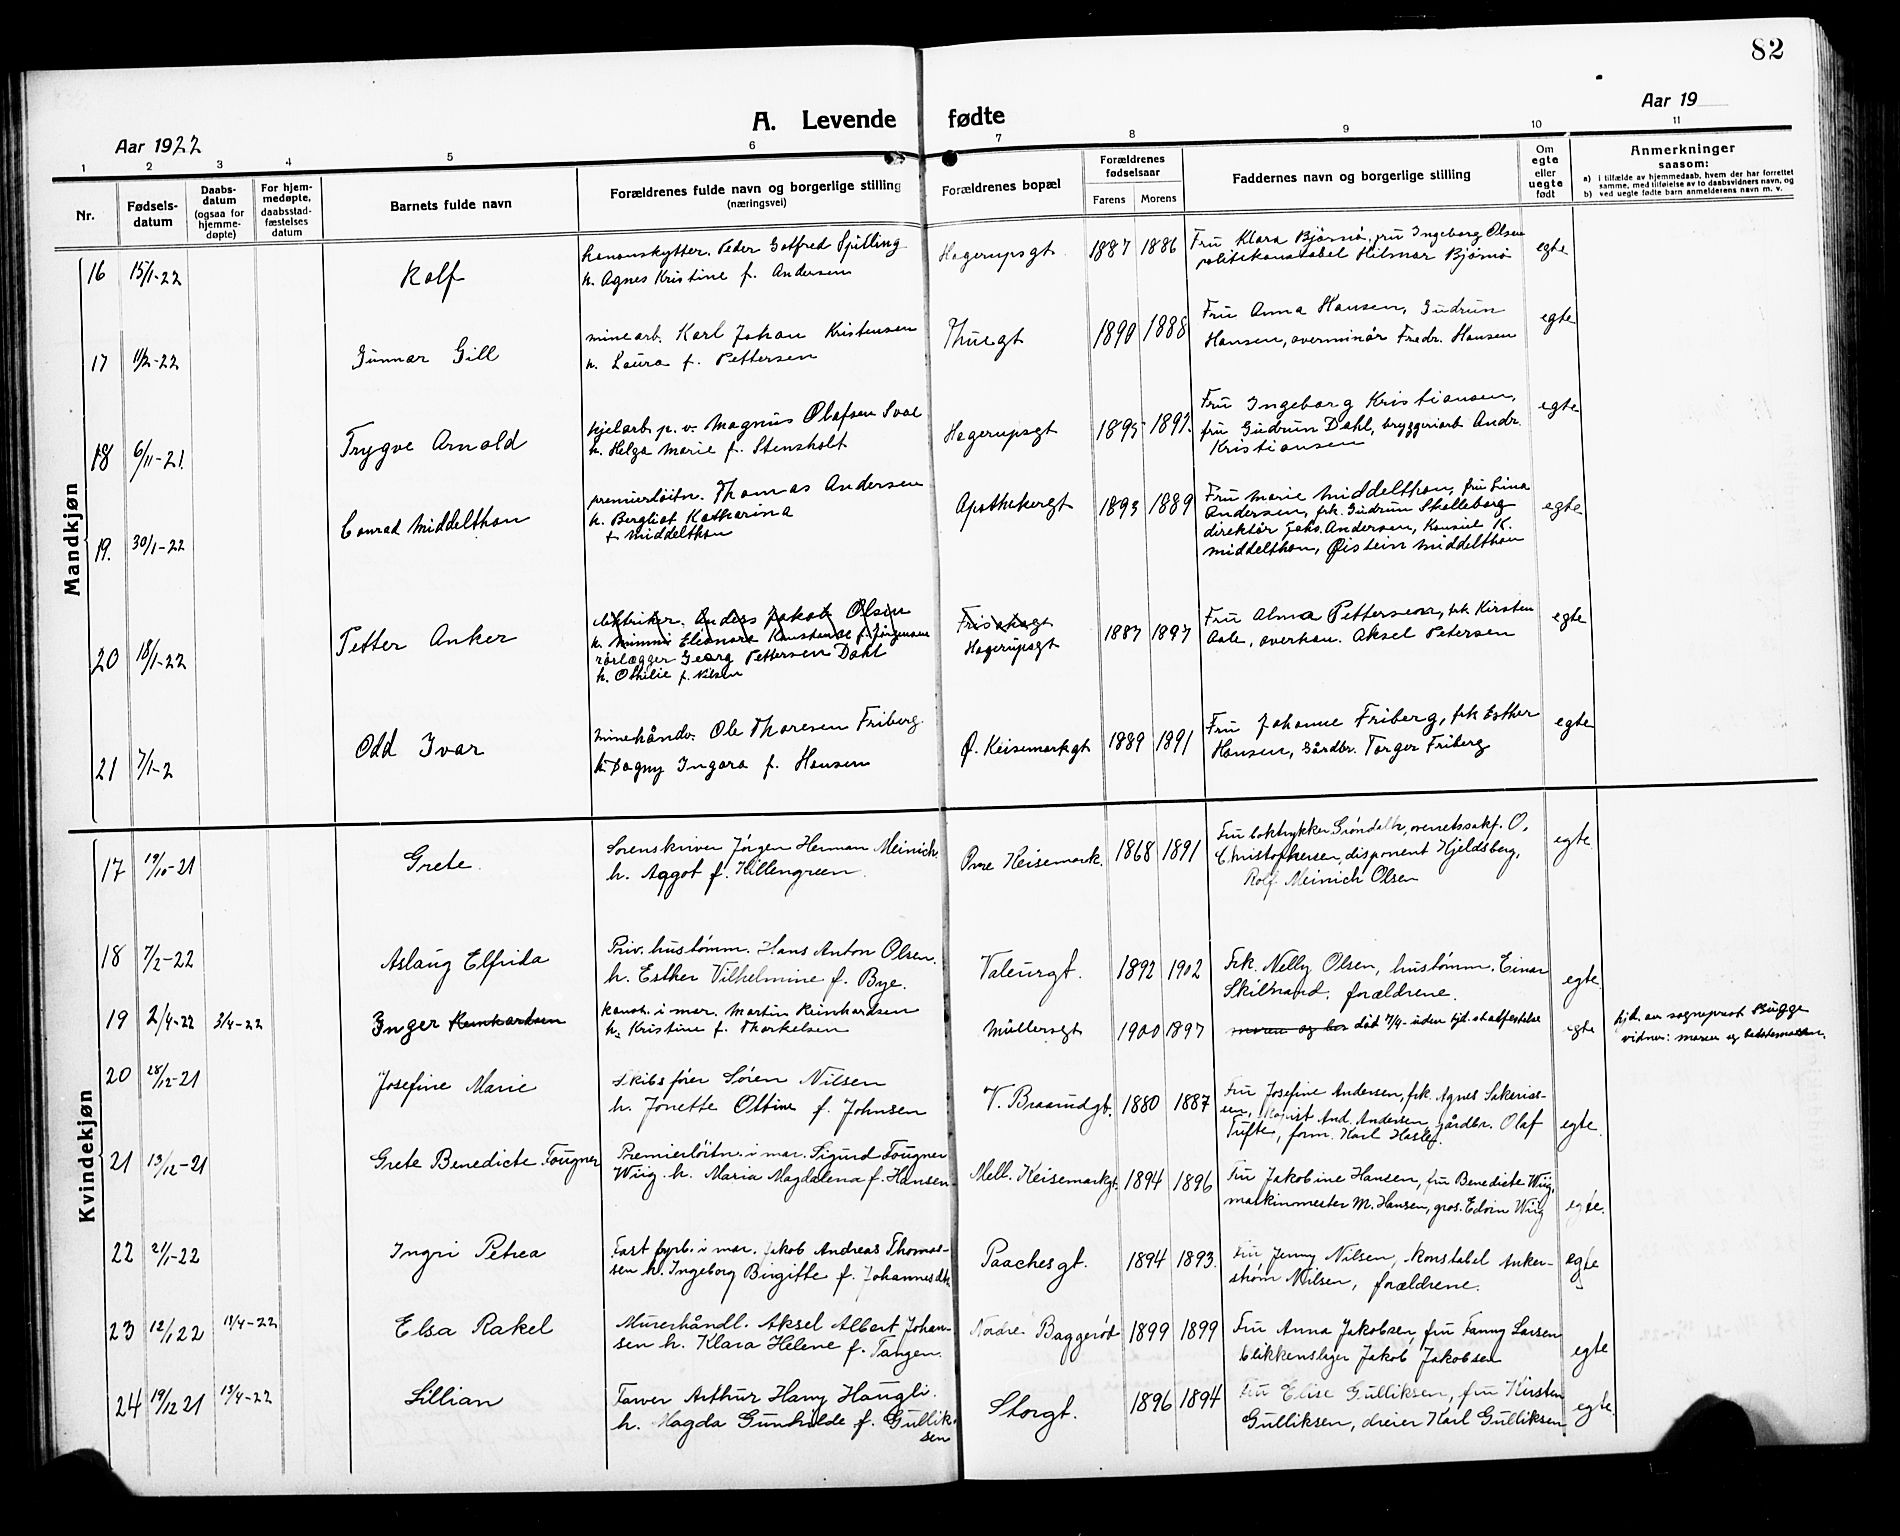 82
A. Levende fødte
Aar 1922
Aar 19
1 2 3 4 5 6 7 8 9 10 11
Nr.
Fødsels-
datum
Daabs-
datum
(ogsaa for
hjemme-
døpte)
For hjem-
medøpte,
daabsstad-
fæstelses
datum
Barnets fulde navn
Forældrenes fulde navn og borgerlige stilling
(næringsvei)
Forældrenes bopæl
Forældrenes
fødselsaar
Farens Morens
Faddernes navn og borgerlige stilling
Om
egte
eller
uegte
født
Anmerkninger
saasom:
a) i tilfælde av hjemmedaab, hvem der har forrettet
samme, med tilføielse av to daabsvidners navn, og
b) ved uegte fødte barn anmelderens navn m. v.
Mandkjøn
16 15/1-22 Rolf
kanonskytter. Peder Gotfred Spilling
h. Agnes Kristine f. Andersen
Hagerupsgt. 1887 1886
Fru Klara Bjørnø, fru Ingeborg Olsen
politikonstabel Hilmar Bjørnø
egte
17 11/2-22 Gunnar Gill
minearb. Karl Johan Kristensen
h. Laura f. Pettersen
Thuegt 1890 1888
Fru Anna Hansen, Gudrun
Hansen, overminør Fredr. Hansen
egte
18 6/11-21. Trygve Arnold
hjelarb. p. v. Magnus Olafsen Svae
h. Helga Marie f. Stensholt
Hagerupsgt 1895 1897.
Fru Ingeborg Kristiansen,
fru Gudrun Dahl, bryggeriarb Andr.
Kristiansen
egte
19. 30/1-22 Conrad Middelthon
premierløitn. Thomas Andersen
h. Bergliot Katharina
f Middelthon
Apothekergt 1893 1889
Fru Marie Middelthon, fru Lina
Andersen, frk. Gudrun Skolleborg
direktør Jahs. Andersen, Konsul K.
Middelthon, Øistein Middelthon
egte
20 18/1-22 Petter Anker
elektriker. Anders Jakob Olsen
h. Mimmi Eleonora Konstanse f. Jørgensen
rørlægger Georg Pettersen Dahl
h. Othilie f. Nilsen
Hagerupsgt
1887 1897
Fru Alma Pettersen, frk Kirsten
Aale, overkan. Aksel Petersen
egte
21 7/1-2 Odd Ivar
minehåndv. Ole Thoresen Friberg
h. Dagny Ingara f. Hansen
Ø. Keisemarkgt 1889 1891
Fru Johanne Friberg, frk Esther
Hansen, Gårdbr. Torger Friberg
egte
Kvindekjøn
17 19/10-21 Grete.
Sorenskriver Jørgen Herman Meinich
h. Aagot f. Hillengreen.
Øvre Keisemark. 1868 1891
Fru boktrykker Grøndahl, overretssakf. O.
Christophersen, disponent Hjeldsberg,
Rolf Meinich Olsen
egte
18 7/2-22 Aslaug Elfrida
Priv. hustømm. Hans Anton Olsen.
h. Esther Vilhelmine f. Bye.
Valeurgt. 1892 1902
Frk. Nelly Olsen, hustømm. Einar
Skilbrand. forældrene.
egte
19 2/4-22 3/4-22 Inger Reinhardsen
konst. i mar. Martin Reinhardsen
h. Kristine f. Thorkelsen
Müllersgt 1900 1897
død 7/4 uden kjd. stadfestelse
egte
hjd. av sogneprest Bugge
vidner: moren og bedstemoren.
20 28/12-21 Josefine Marie
Skibsfører Søren Nilsen
h. Jonette Ottine f. Johnsen
V. Braarudgt. 1880 1887
Fru Josefine Andersen, frk. Agnes Sakerias-
sen, kopist And. Andersen, gårdbr. Olaf
Tufte, form. Karl Haslef
egte.
21 13/12-21 Grete Benedicte Fougner
Premierløitn. i mar. Sigurd Fougner
Wiig. h. Maria Magdalena f. Hansen.
Mell. Keisemarkgt. 1894 1896
Fru Jakobine Hansen, fru Benedicte Wiig,
maskinmester M. Hansen, gros. Edvin Wiig
egte.
22 21/1-22 Ingri Petrea
Fast fyrb. i mar. Jakob Andreas Thomas-
sen h. Ingeborg Birgitte f. Johannesdtr.
Paachesgt. 1894 1893.
Fru Jenny Nilsen, konstabel Anker-
strøm Nilsen, forældrene.
egte
23 12/1 22 17/4-22 Elsa Rakel
Murerhåndl. Aksel Albert Johan-
sen h. Klara Helene f. Tangen.
Nordre Baggerød 1899 1899
Fru Anna Jakobsen, fru Fanny Larsen
blikkenslager Jakob Jakobsen
egte
24 19/12 21 13/4-22 Lillian
Farver Arthur Harry Haugli.
h. Magda Gunhilde f. Gullik-
sen
Storgt. 1896 1894
Fru Elise Gulliksen, fru Kirsten
Gulliksen, dreier Karl Gulliksen
egte.